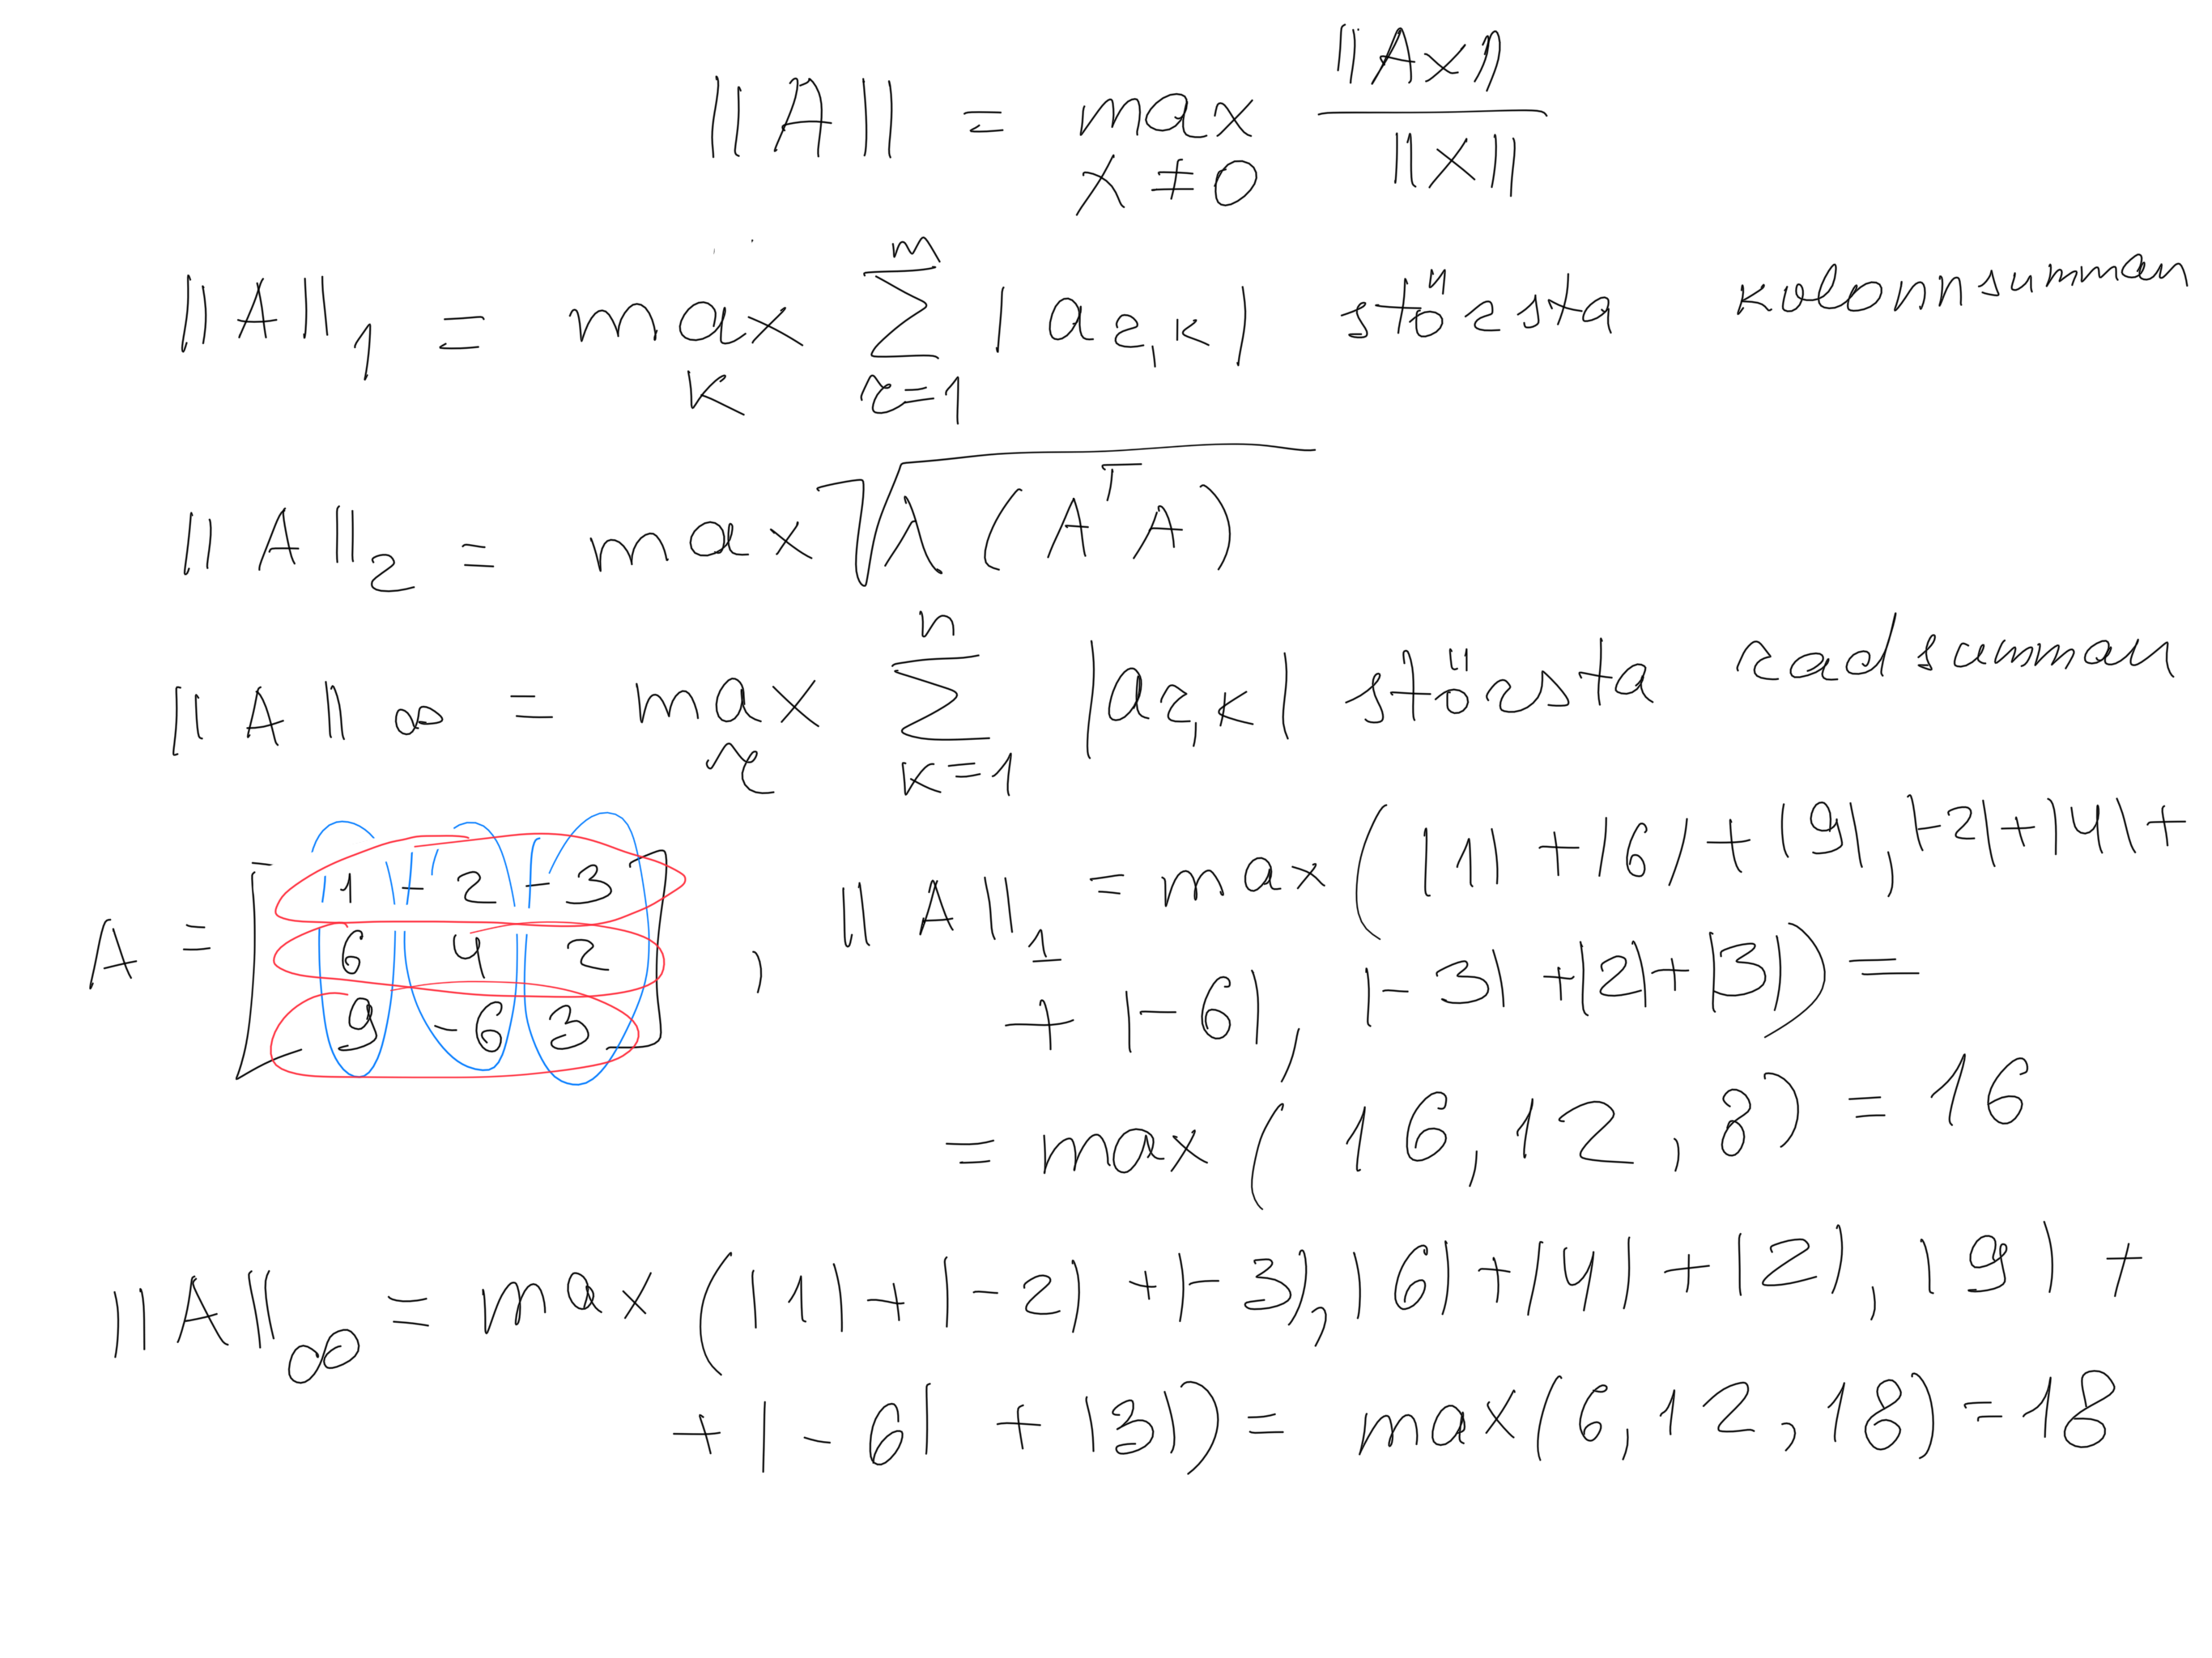 ||A|| = max_{x ≠ 0} ||Ax|| / ||x||
||A||_1 = max_k ∑_{r=1}^{m} |a_{r,k}| största kolonnsumman
||A||_2 = max √λ(A^T A)
||A||_∞ = max_r ∑_{k=1}^{n} |a_{r,k}| största radsumman
A = [1 -2 -3
6 4 2
9 -6 3] , ||A||_1 = max(|1| + |6| + |9|, |-2| + |4| +
+ |-6|, |-3| + |2| + |3|) =
= max(16, 12, 8) = 16
||A||_∞ = max(|1| + |-2| + |-3|, |6| + |4| + |2|, |9| +
+ |-6| + |3|) = max(6, 12, 18) = 18